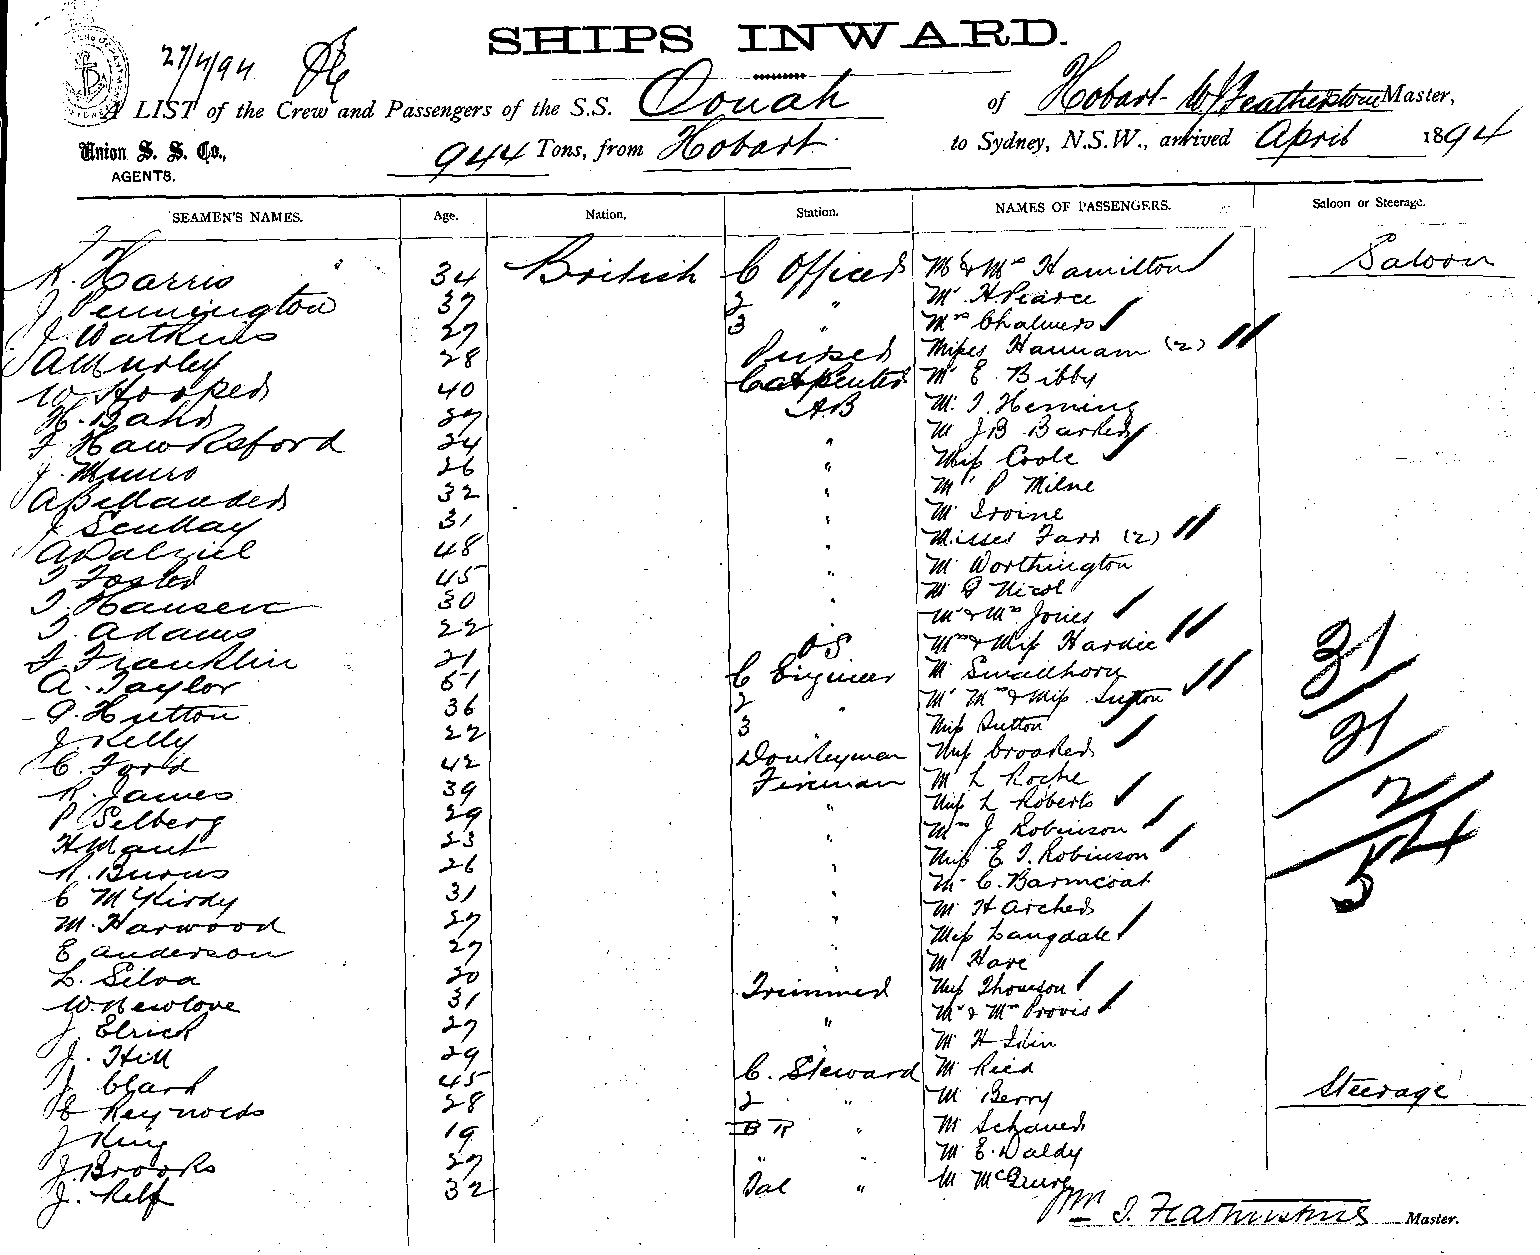 SHIPS INWARD.
27/4/94
A LIST of the Crew and Passengers of the S.S. Oonah of Hobart - W J Featherstone Master,
Union S. S. Co., AGENTS. 944 Tons, from Hobart to Sydney, N.S.W., arrived April 1894
SEAMEN'S NAMES. Age. Nation. Station. NAMES OF PASSENGERS. Saloon or Steerage.
R. Harris 34 British C Officer Mr & Mrs Hamilton Saloon
J Pennington 37 2 " Mr H Pearce
J. Watkins 27 3 " Mrs Chalmers
A Murley 28 Purser Misses Hannam (2)
W Hooper 40 Carpenter Mr E. Bibby
H. Bahr 27 AB Mr. T. Heming
F Hawksford 24 " Mr J B Barker
J. Munro 26 " Miss Coole
A 32 " Mr P Milne
J 31 " Mr Irvine
A Dalziel 48 " Misses Farr (2)
T Foster 45 " Mr Worthington
T. Hansen 30 " Mr Nicol
T. Adams 22 Mr & Mrs Jones
F Franklin 21 OS Mrs & Miss Hardie
A. Taylor 51 C Engineer Mr Smallhorn
Hutton 36 2 " Mr Mrs & Miss Sutton
J Kelly 22 3 Miss Sutton
C. Ford 42 Donkeyman Miss Crooker
R. James 39 Fireman Mr L Roche
P Selberg 29 " Miss L Roberts
H Mant 23 " Mrs J Robinson
R. Burns 26 " Miss E. I. Robinson
C McKirdy 31 " Mr C. Barmcoat
M. Harwood 27 " Mr H Archer
E Anderson 27 " Miss Langdale
L. Silva 20 Mr Hare
W. Newlove 31 Trimmer Miss Thomson
J Elrick 27 " Mr & Mrs Provis
J. Hill 29 Mr H
J Clark 45 C. Steward Mr Reid
E Reynolds 28 2 " Mr Berry Steerage
J King 19 BR " Mr Schauer
J. Brooks 27 " " Mr E. Waldy
J. Relf 32 " Mr McGurk
31
21
2
54
Wm J. Featherstone Master.